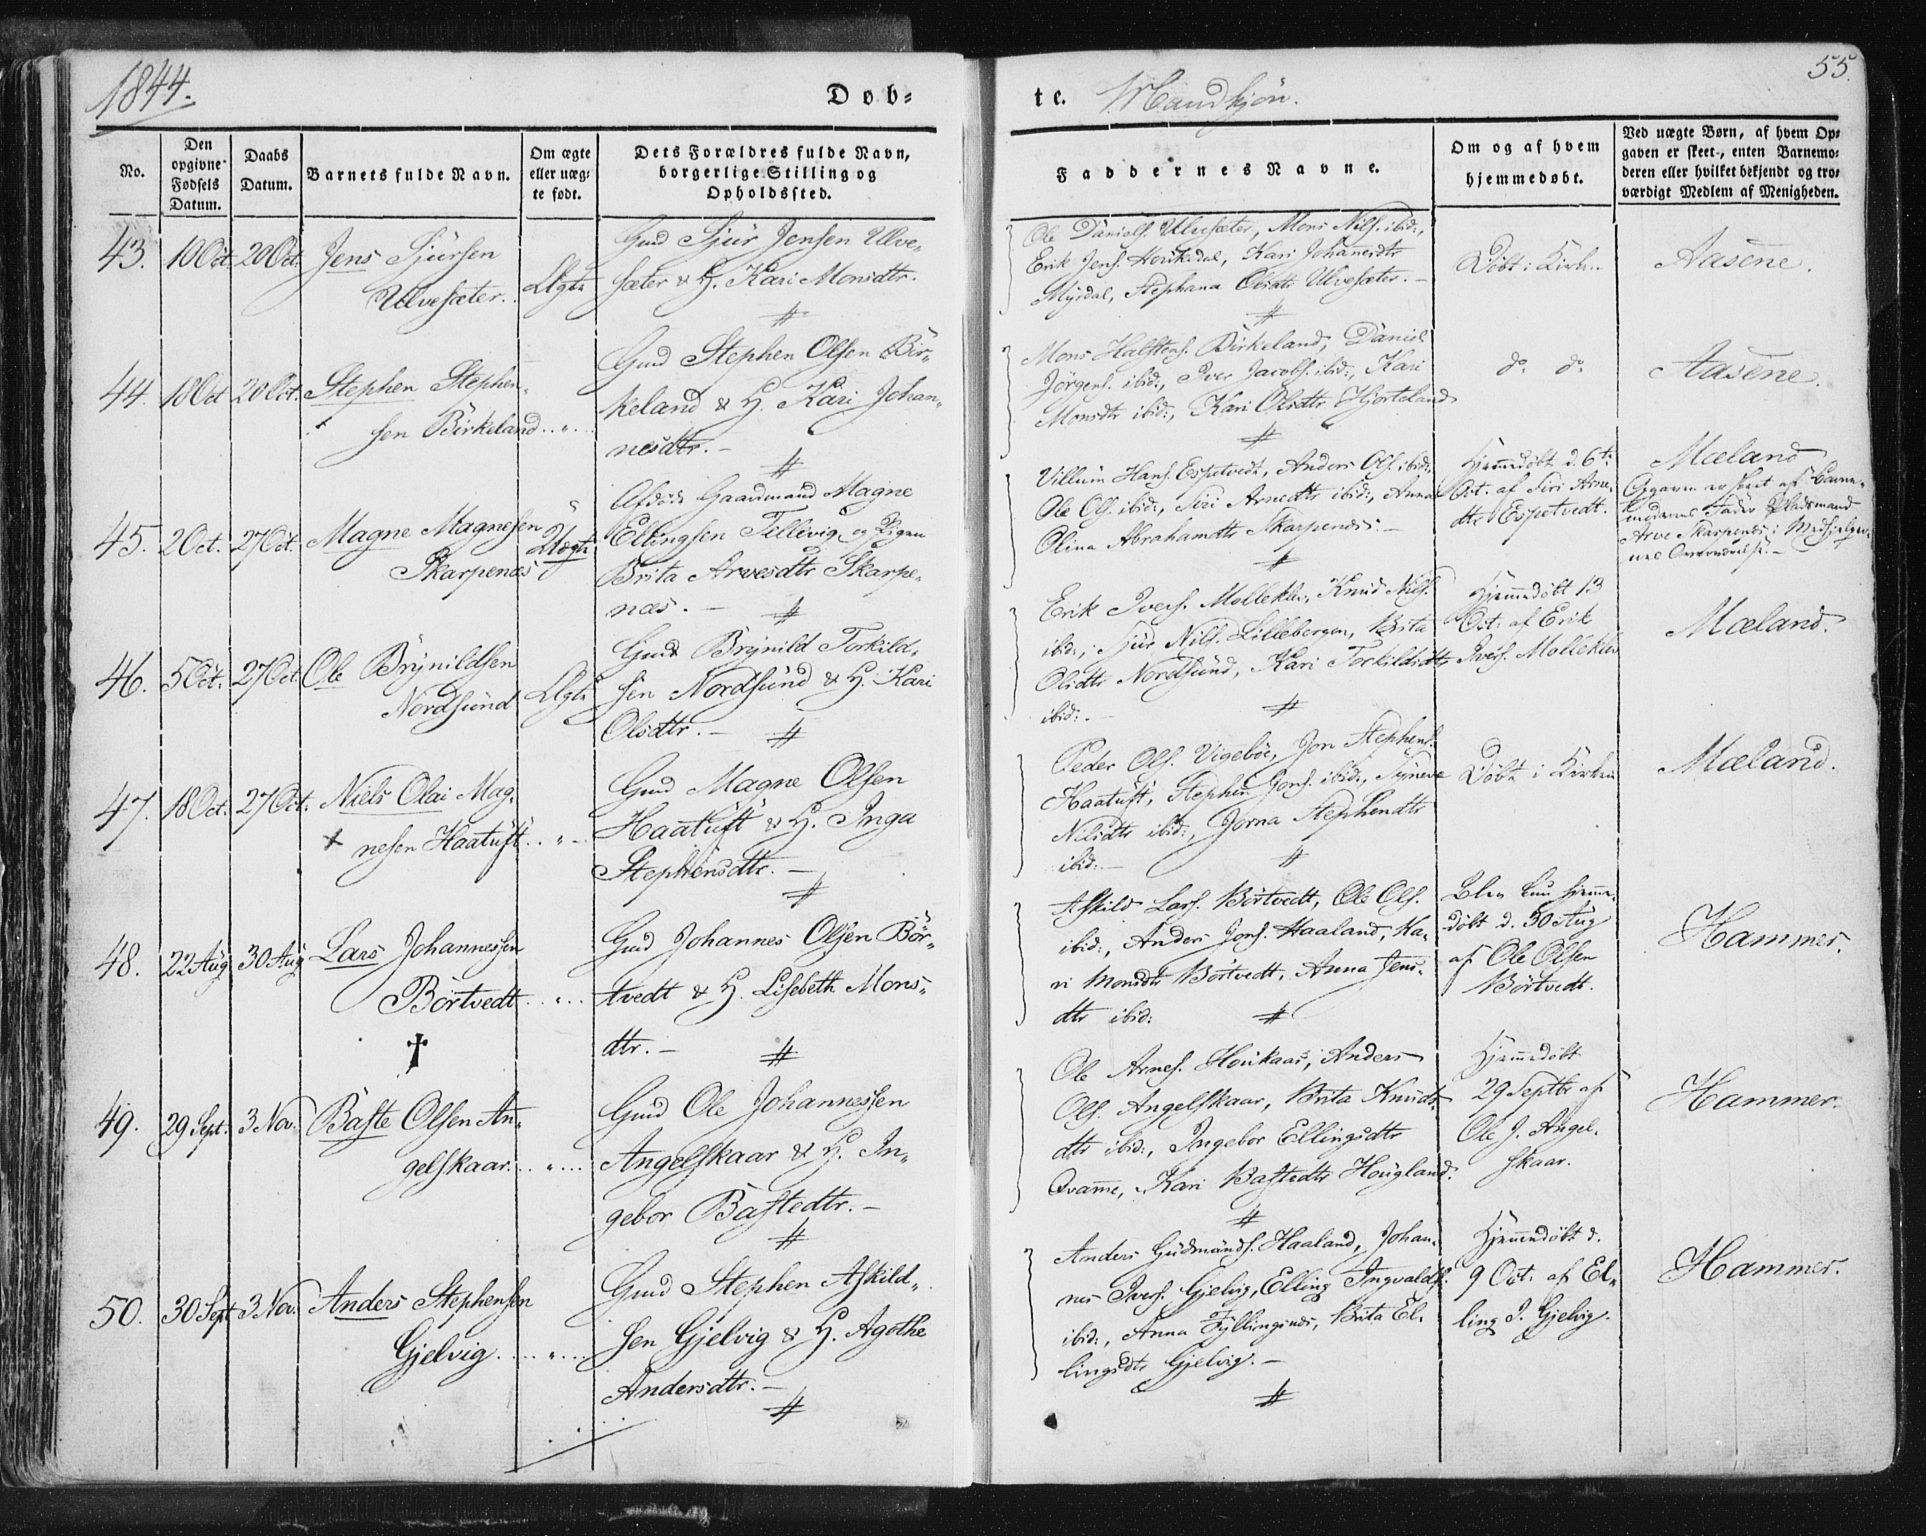 1844.
Dob-
te. Mandkjön.
55.
No.
Den opgivne Fødsels Datum.
Daabs Datum.
Barnets fulde Navn.
Om ægte eller uægte født.
Dets Forældres fulde Navn, borgerlige Stilling og Opholdssted.
Faddernes Navne.
Om og af hvem hjemmedøbt.
Ved uægte Børn, af hvem Opgaven er skeet, enten Barnemoderen eller hvilket bekjendt og troværdigt Medlem af Menigheden.
43. 10 Oct. 20 Oct. Jens Sjursen
Ulvesæter.
Ægte
Gmd Sjur Jensen Ulve-
sæter & H. Kari Monsdtr.
Ole Daniels. Ulvesæter, Mons Nils. ibid:,
Erik Jens. Houkedal, Kari Johannesdtr
Myrdal, Stephana Olsdtr Ulvesæter.
Döbt i Kirken
Aasene.
44. 18 Oct 20 Oct. Stephen Stephen-
sen Birkeland
Gmd Stephen Olsen Bir-
keland & H. Kari Johan-
nesdtr.
Mons Halstens. Birkeland, Daniel
Jörgens. ibid:, Iver Jacobs. ibid:, Kari
Monsdtr ibid:, Kari Olsdtr Hjorteland
do do
Aasene.
45. 2 Oct. 27 Oct. Magne Magnesen
Skarpenæs
Uægte
Afdöde Gaardmand Magne
Ellingsen Tellevig, og Pigen
Brita Arvesdtr Skarpe-
næs.
Villum Hans. Espetvedt, Anders Ols. ibid:,
Ole Ols. ibid:, Siri Arnedtr ibid:, Anna
Olina Abrahamdtr Skarpenæs.
Hjemmedöbt d. 6te
Oct. af Siri Arne-
dtr Espetvedt.
Mæland
Opgaven er skeet af Barne-
moderens Fader Pladsmand
Arve Skarpenæs i
46. 5 Oct. 27 Oct. Ole Brynildsen
Nordsund
Ægte
Gmd Brynild Torkild-
sen Nordsund & H. Kari
Olsdtr.
Erik Ivers. Molleklev, Knud Nils.
ibid:, Sjur Nils. Lillebergen, Brita
Olsdtr Nordsund, Kari Torkildsdtr
ibid:.
Hjemmedöbt 13
Oct. af Erik
Ivers. Molleklev
Mæland.
47. 18 Oct. 27 Oct. Niels Olai Mag-
nesen Haatuft
Gmd Magne Olsen
Haatuft & H. Inga
Stephensdtr.
Peder Ols. Vigeböe, Jon Stephens.
Haatuft, Stephen Jons. ibid:, Synneve
Nilsdtr ibid:, Jorna Stephendtr
ibid:
Döbt i Kirken
Mæland.
48. 22 Aug 30 Aug Lars Johannessen
Börtvedt
†
Gmd Johannes Olsen Bör-
tvedt & H. Lisebeth Mons-
dtr.
Askild Lars. Börtvedt, Ole Ols.
ibid:, Anders Jons. Haaland, Ka-
ri Monsdtr Börtvedt, Anna Jens-
dtr ibid:
Blev kun hjemme-
döbt d. 30 Aug
af Ole Olsen
Börtvedt.
Hammer.
49. 29 Sept. 3 Nov. Baste Olsen An-
gelskaar
Gmd Ole Johannessen
Angelskaar & H. In-
gebor Bastedtr.
Ole Arnes. Houkaas, Anders
Ols. Angelskaar, Brita Knuds-
dtr ibid:, Ingebor Ellingsdtr
Qvamme, Kari Bastedtr Hougland.
Hjemmedöbt
29 Septbr af
Ole J. Angel-
skaar.
Hammer.
50. 30 Sept 3 Nov. Anders Stephensen
Gjelvig
Gmd Stephen Askild-
sen Gjelvig & H. Agothe
Andersdtr.
Anders Gudmunds. Haaland, Johan-
nes Ivers. Gjelvig, Elling Ingvalds.
ibid:, Anna Fyllingsnes, Brita El-
lingsdtr Gjelvig.
Hjemmedöbt d.
9 Oct. af El-
ling I. Gjelvig.
Hammer.